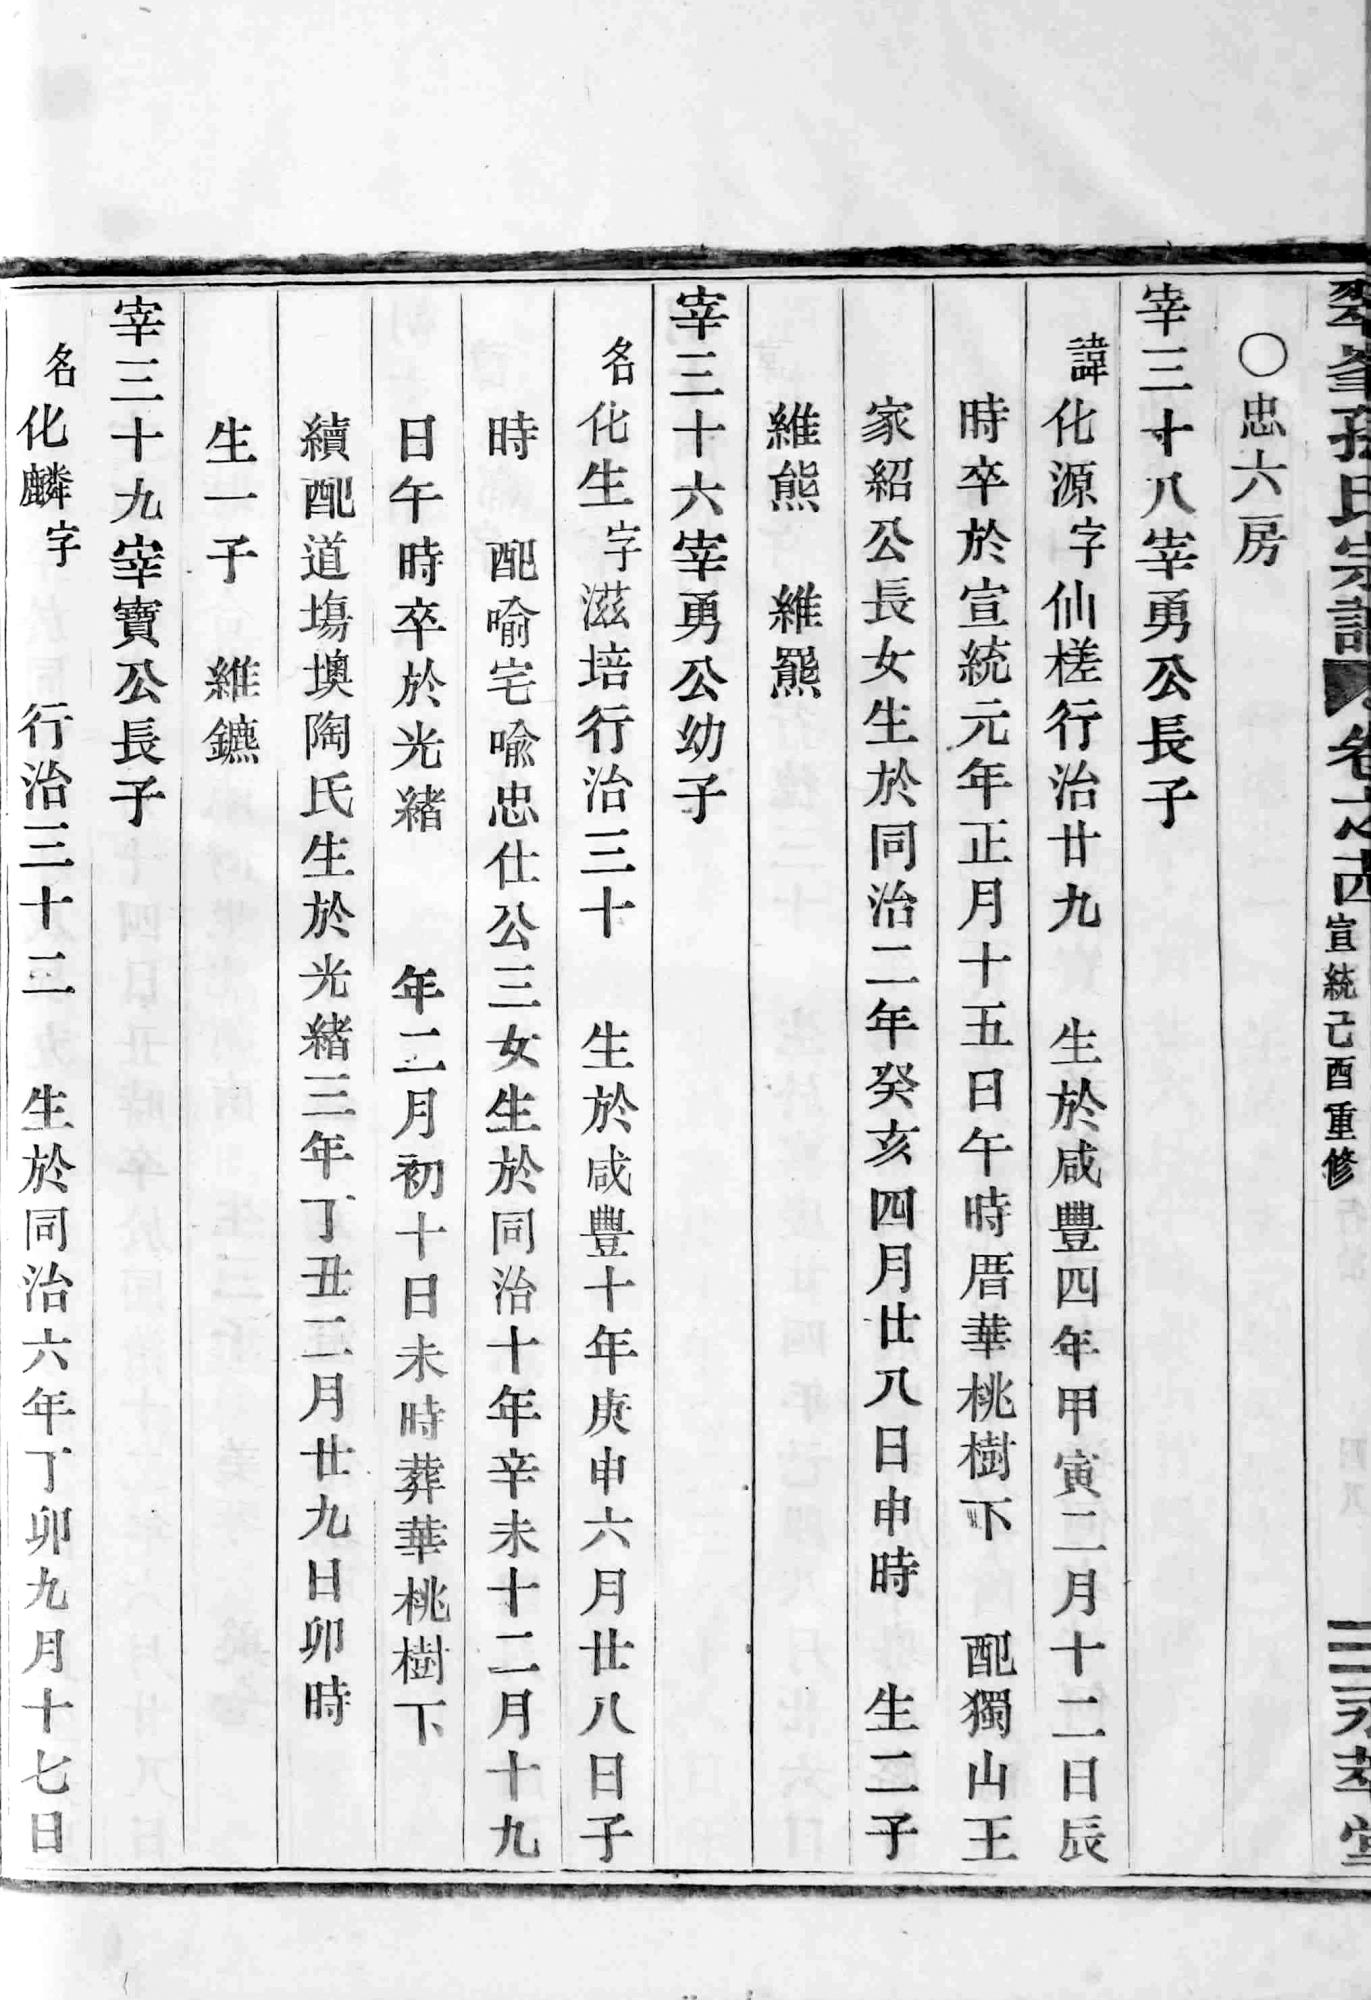 翠峯孫氏宗譜 卷之四 宣統己酉重修 三 永萃堂
〇忠六房
宰三十八宰勇公長子
諱化源字仙槎行治廿九 生於咸豐四年甲寅二月十二日辰
時卒於宣統元年正月十五日午時厝華桃樹下 配獨山王
家紹公長女生於同治二年癸亥四月廿八日申時 生二子
維熊 維羆
宰三十六宰勇公幼子
名化生字滋培行治三十 生於咸豐十年庚申六月廿八日子
時 配喻宅喻忠仕公三女生於同治十年辛未十二月十九
日午時卒於光緒 年二月初十日未時葬華桃樹下
續配道塲墺陶氏生於光緒三年丁丑二月廿九日卯時
生一子 維鑣
宰三十九宰寶公長子
名化麟字 行治三十二 生於同治六年丁卯九月十七日